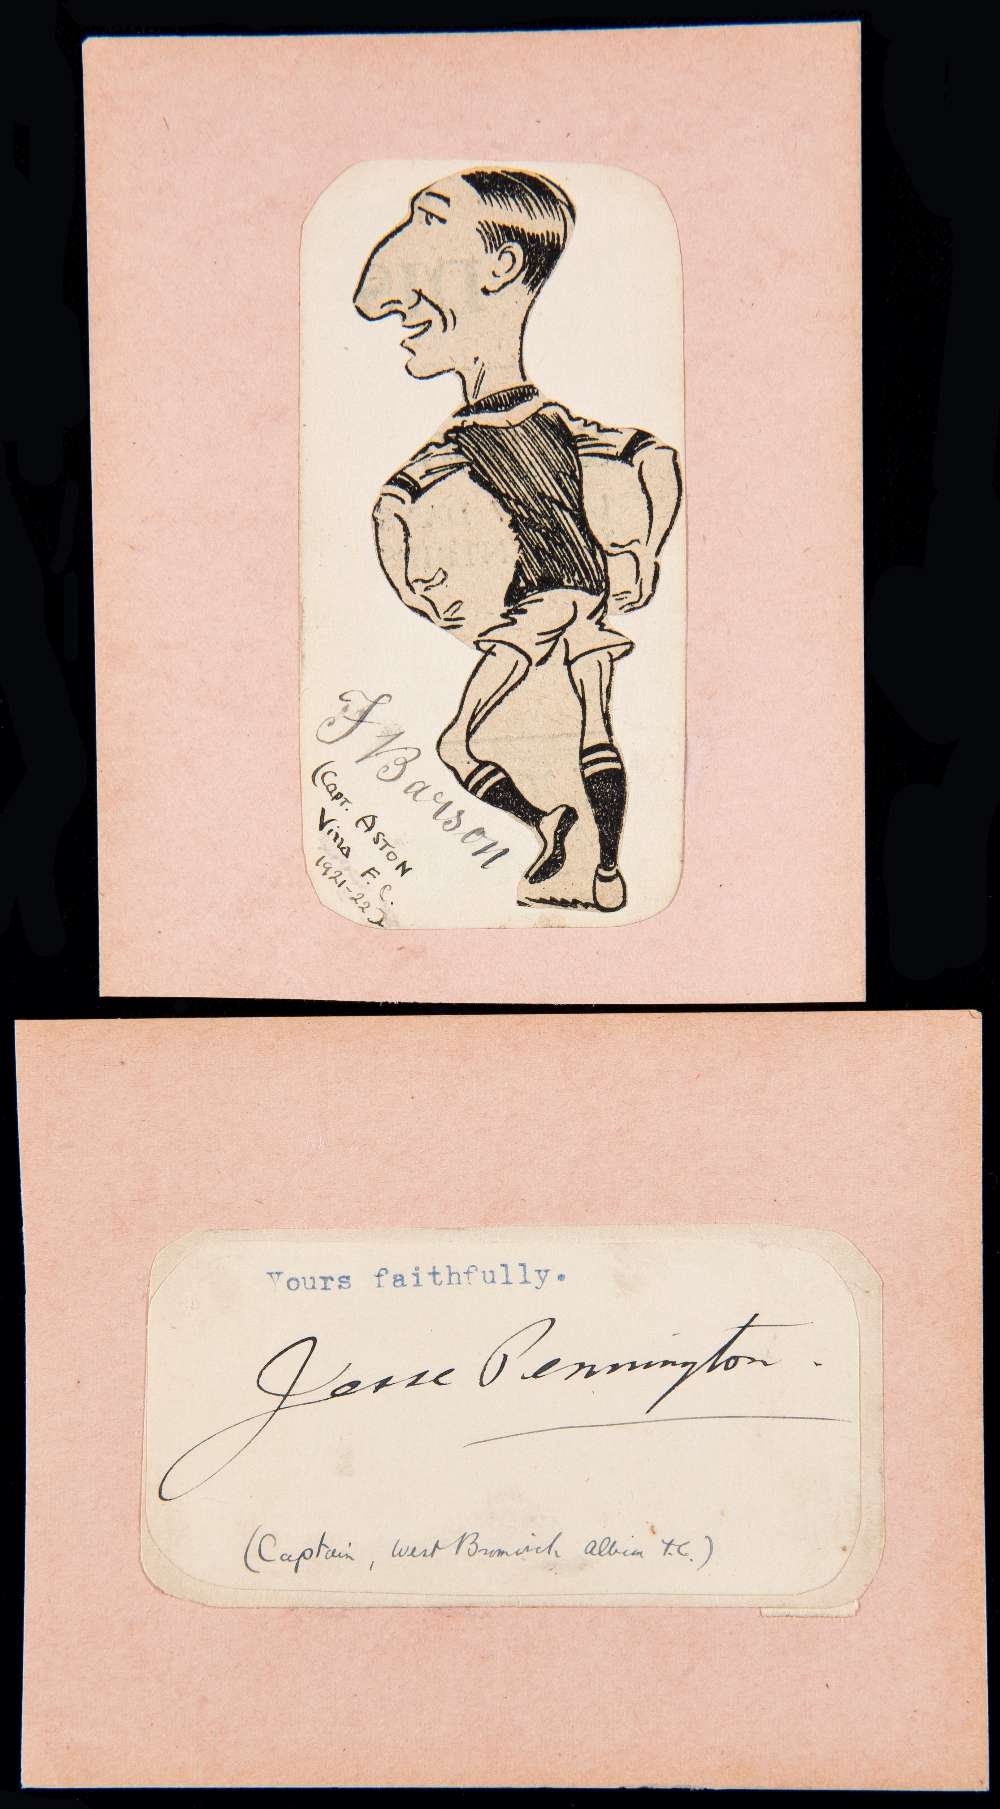 F Barson
(Capt. ASTON
Villa F.C.
1921-22)
Yours faithfully.
Jesse Pennington.
(Captain, West Bromwich Albion F.C.)